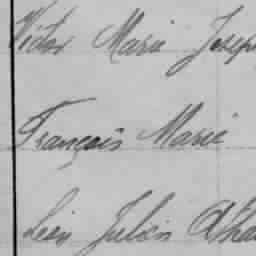 Victor Marie Joseph
François Marie
Léon Julien